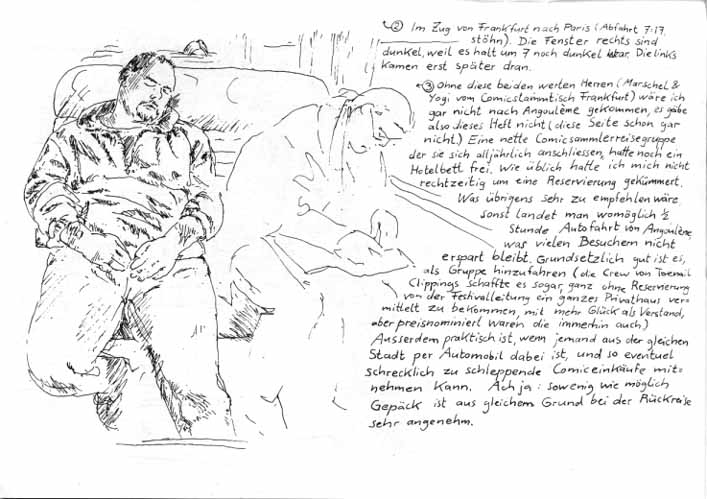 ② Im Zug von Frankfurt nach Paris (Abfahrt 7:17.
stöhn). Die Fenster rechts sind
dunkel, weil es halt um 7 noch dunkel war. Die links
kamen erst später dran.
③ Ohne diese beiden werten Herren (Marschel &
Yogi vom Comicstammtisch Frankfurt) wäre ich
gar nicht nach Angoulème gekommen, es gäbe
also dieses Heft nicht (diese Seite schon gar
nicht.) Eine nette Comicsammlerreisegruppe
der sie sich alljährlich anschliessen, hatte noch ein
Hotelbett frei. Wie üblich hatte ich mich nicht
rechtzeitig um eine Reservierung gekümmert.
Was übrigens sehr zu empfehlen wäre
sonst landet man womöglich ½
Stunde Autofahrt von Angoulème,
was vielen Besuchern nicht
erspart bleibt. Grundsetzlich gut ist es,
als Gruppe hinzufahren (die Crew von
Clippings schaffte es sogar, ganz ohne Reservierung
von der Festivalleitung ein ganzes Privathaus ver-
mittelt zu bekommen, mit mehr Glück als Verstand,
aber preisnominiert waren die immerhin auch)
Ausserdem praktisch ist, wenn jemand aus der gleichen
Stadt per Automobil dabei ist, und so eventuel
schrecklich zu schleppende Comiceinkäufe mit-
nehmen kann. Ach ja: sowenig wie möglich
Gepäck ist aus gleichem Grund bei der Rückreise
sehr angenehm.